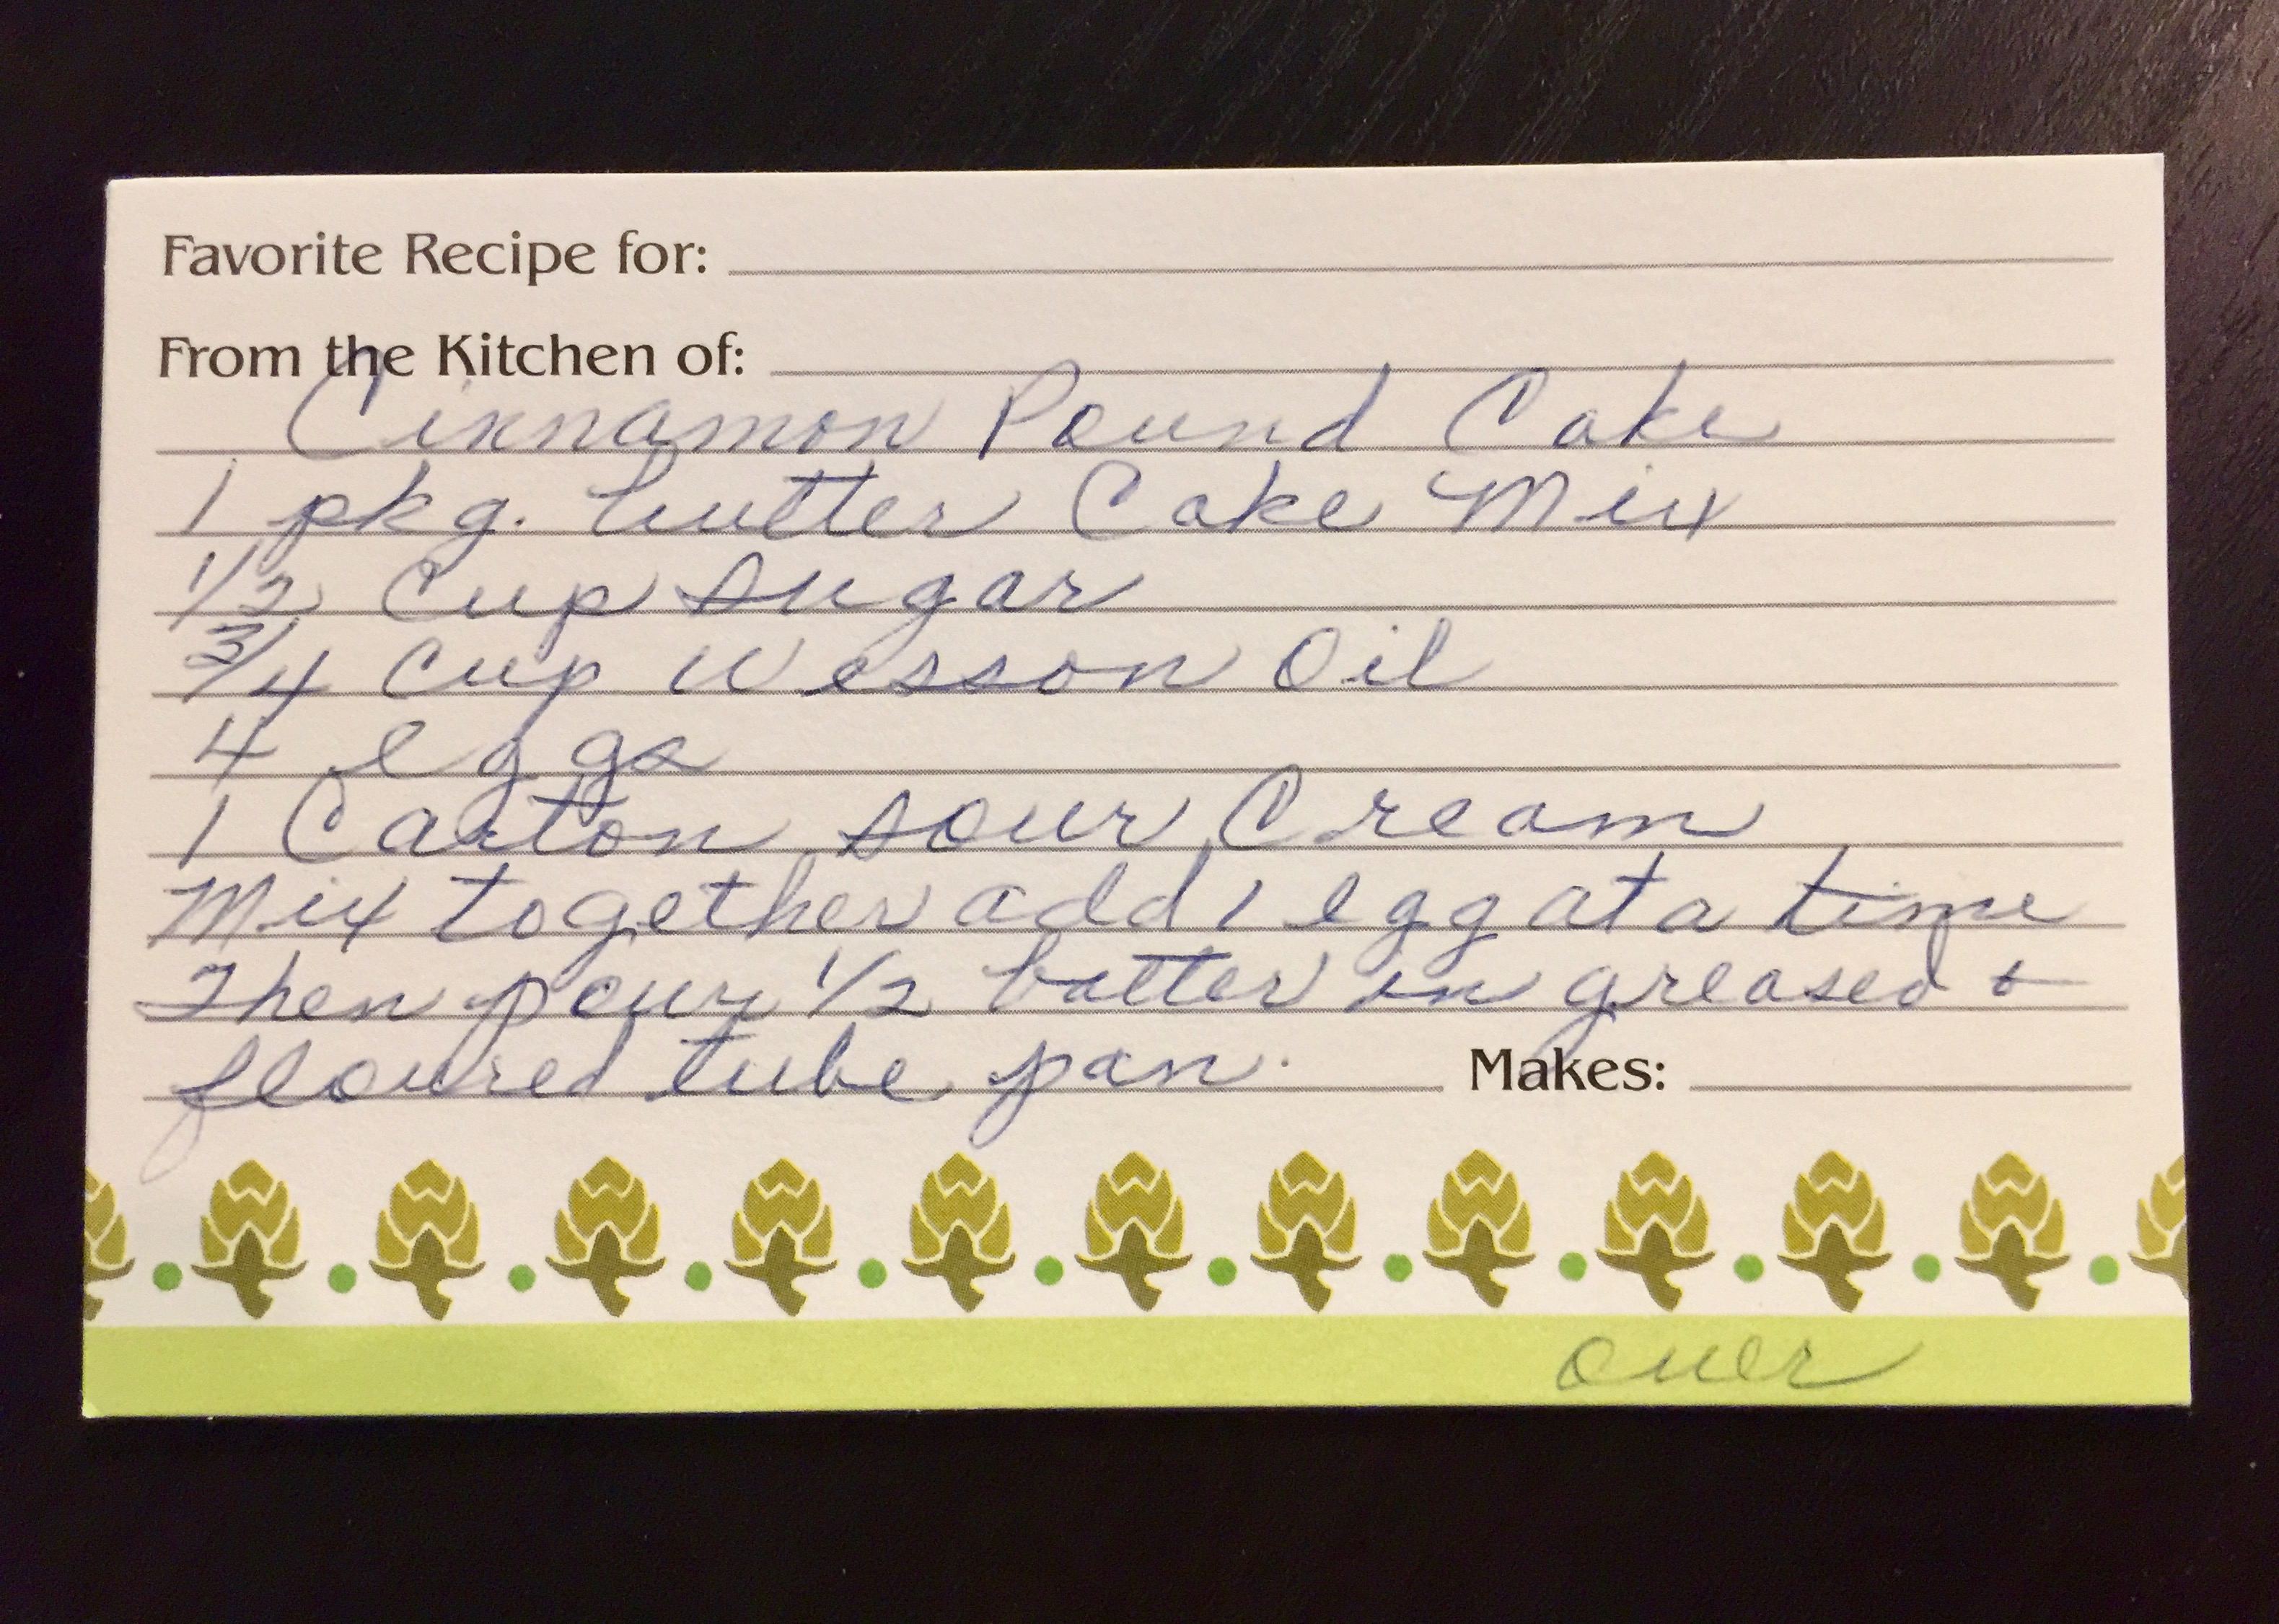 Favorite Recipe for:
From the Kitchen of:
Cinnamon Pound Cake
1 pkg. butter Cake Mix
1/2 Cup sugar
3/4 Cup Wesson Oil
4 eggs
1 Carton sour Cream
Mix together add 1 egg at a time
Then pour 1/2 batter in greased &
floured tube pan.
Makes:
over